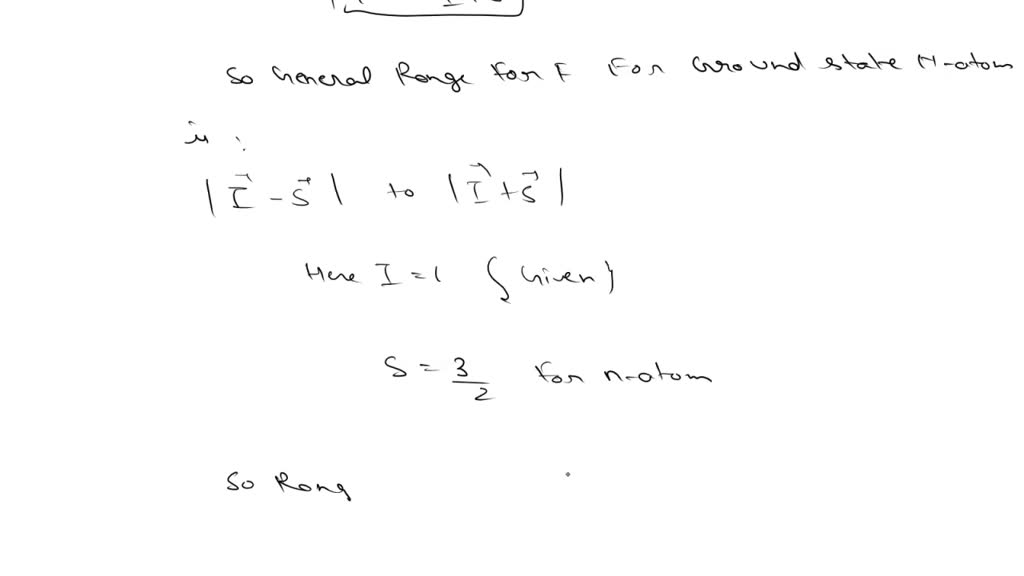 So General Range for F For Ground state N-atom
is :
|I⃗ - S⃗| to |I⃗ + S⃗|
Here I = 1 {Given}
S = 3/2 for n-atom
So Rang